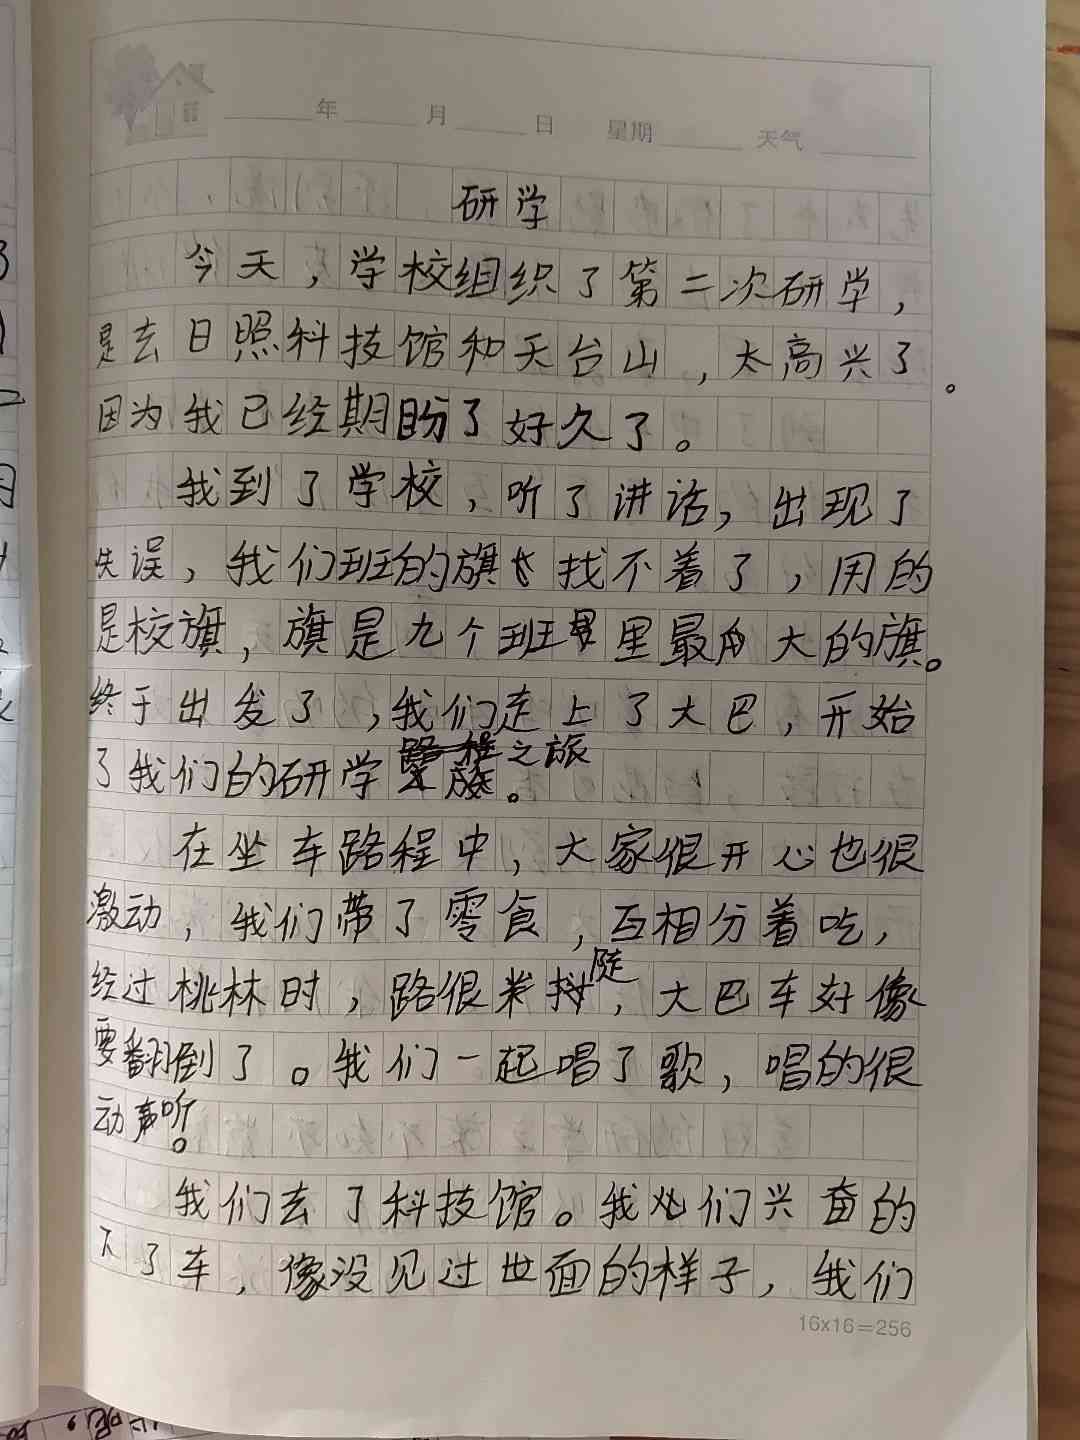 年 月 日 星期 天气
研学
今天，学校组织了第二次研学，
是去日照科技馆和天台山，太高兴了。
因为我已经期盼了好久了。
我到了学校，听了讲话，出现了
失误，我们班的旗找不着了，用的
是校旗，旗是九个班里最大的旗。
终于出发了，我们走上了大巴，开始
了我们的研学之旅。
在坐车路程中，大家很开心也很
激动，我们带了零食，互相分着吃，
经过桃林时，路很陡，大巴车好像
要翻倒了。我们一起唱了歌，唱的很
动听。
我们去了科技馆。我们兴奋的
下了车，像没见过世面的样子，我们
16x16=256